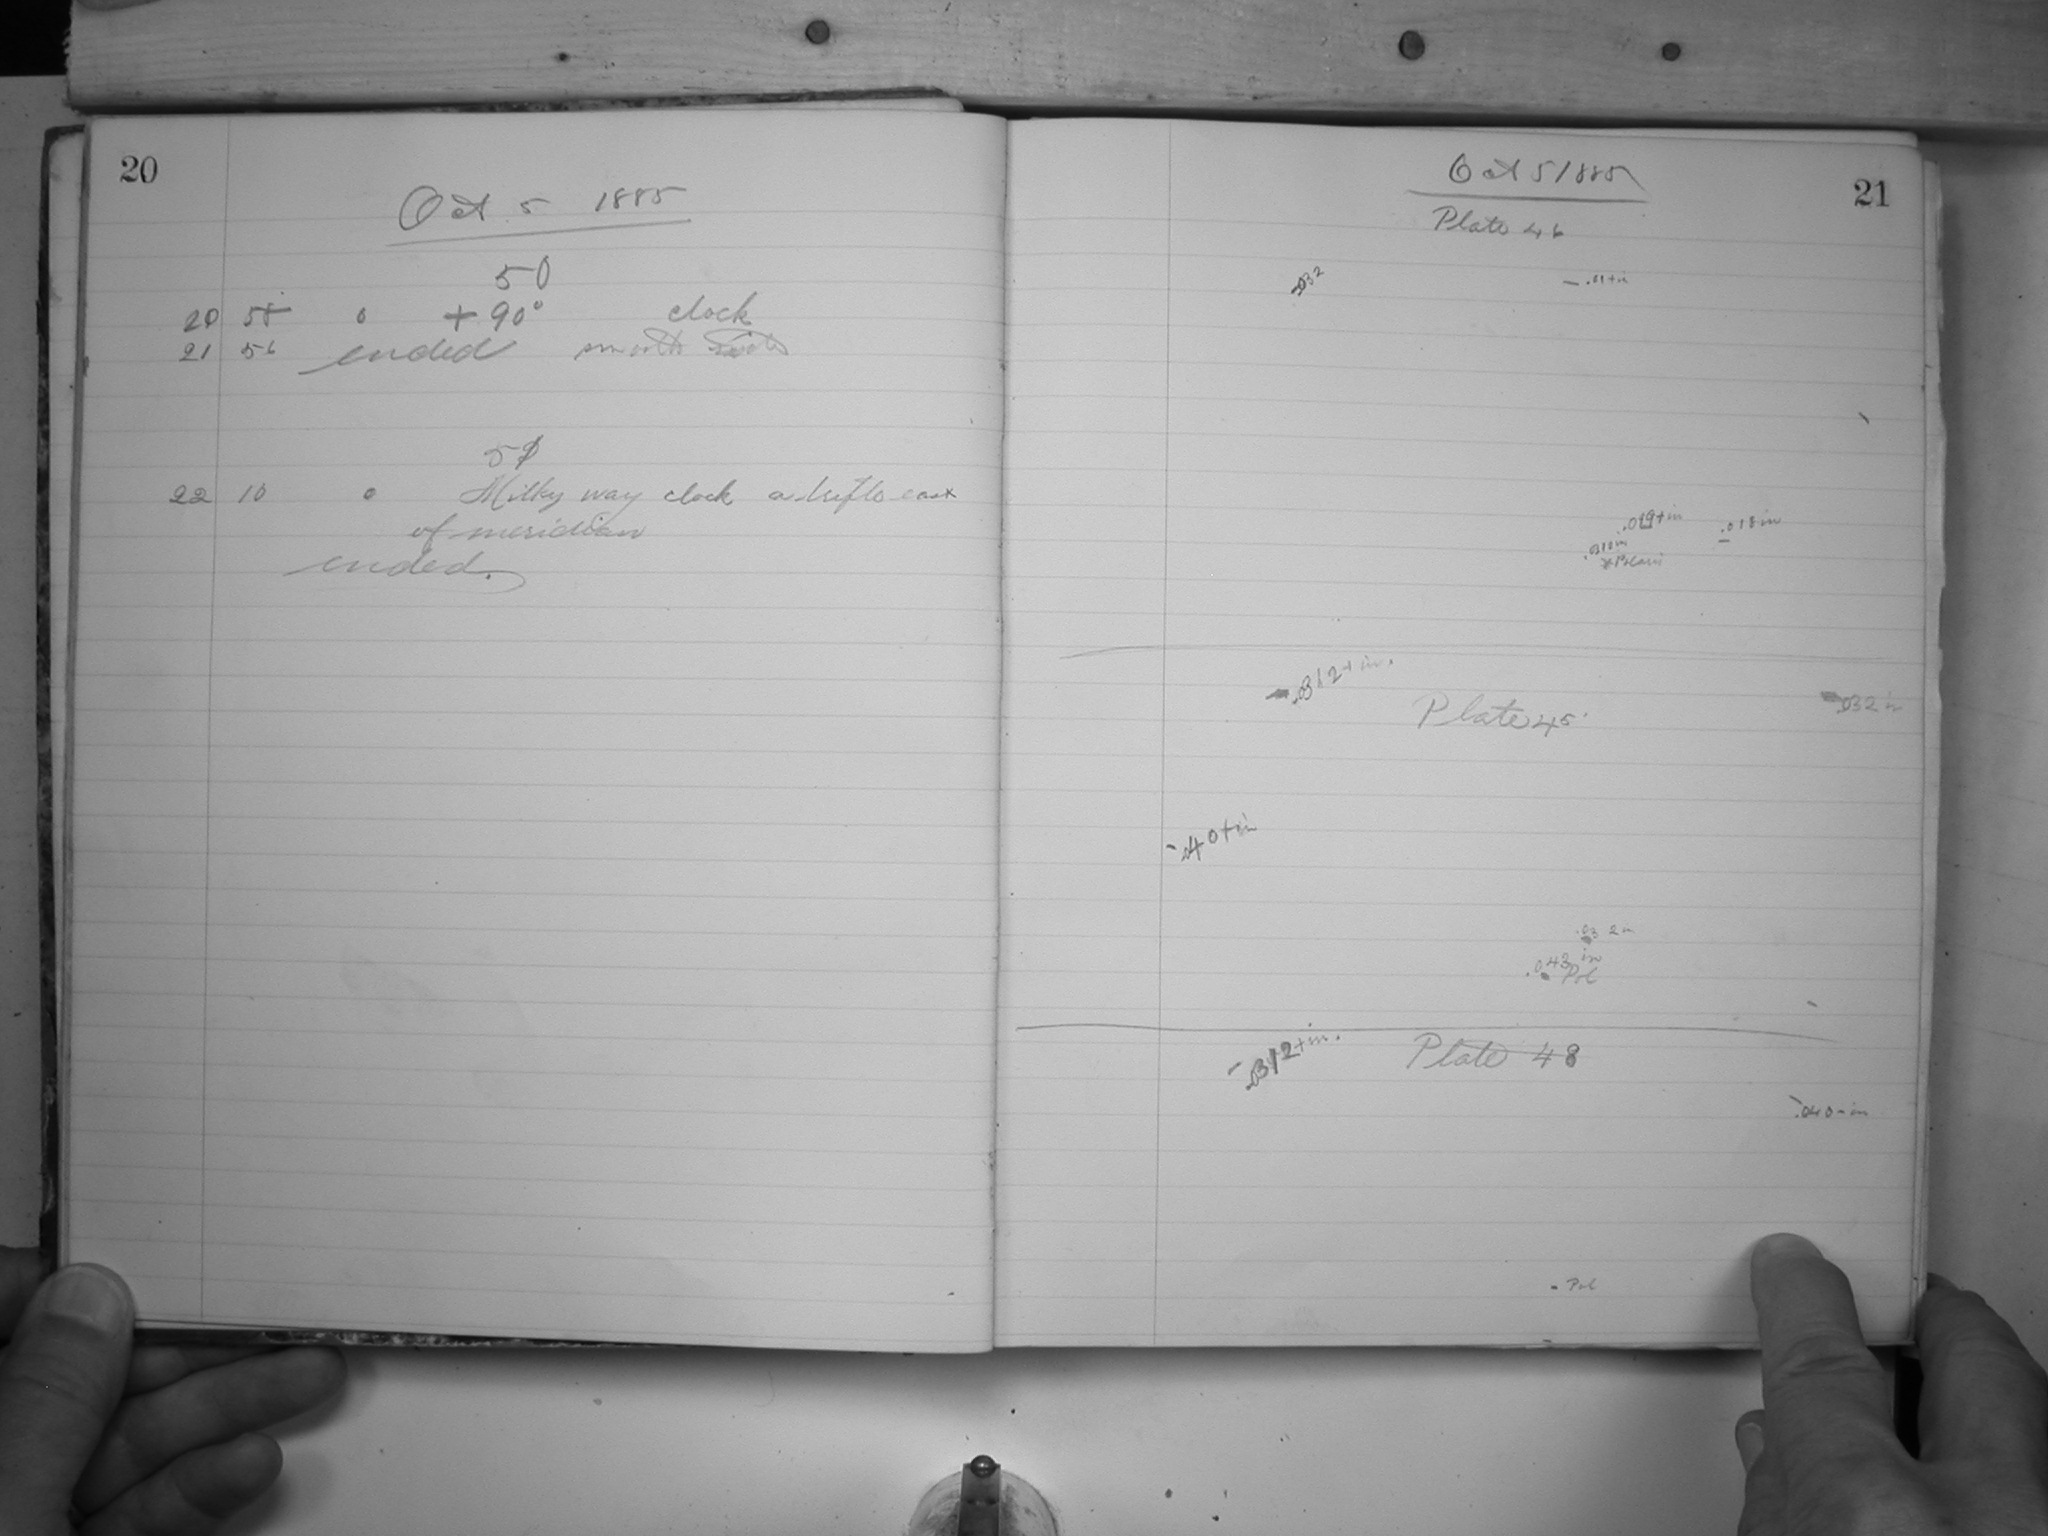 20
Oct 5 1885
50
20 58 0 +90° clock
21 56 ended smooth
51
22 10 0 Milky way clock a trifle east
of meridian
ended.
21
Oct 5 1885
Plate 46
.032
.01+in
.019+in
.018in
.031in
*Polaris
.0312+in.
Plate 45
.032in
.040+in
.032in
.043in
Pol
.0312+in.
Plate 48
.040-in
Pol